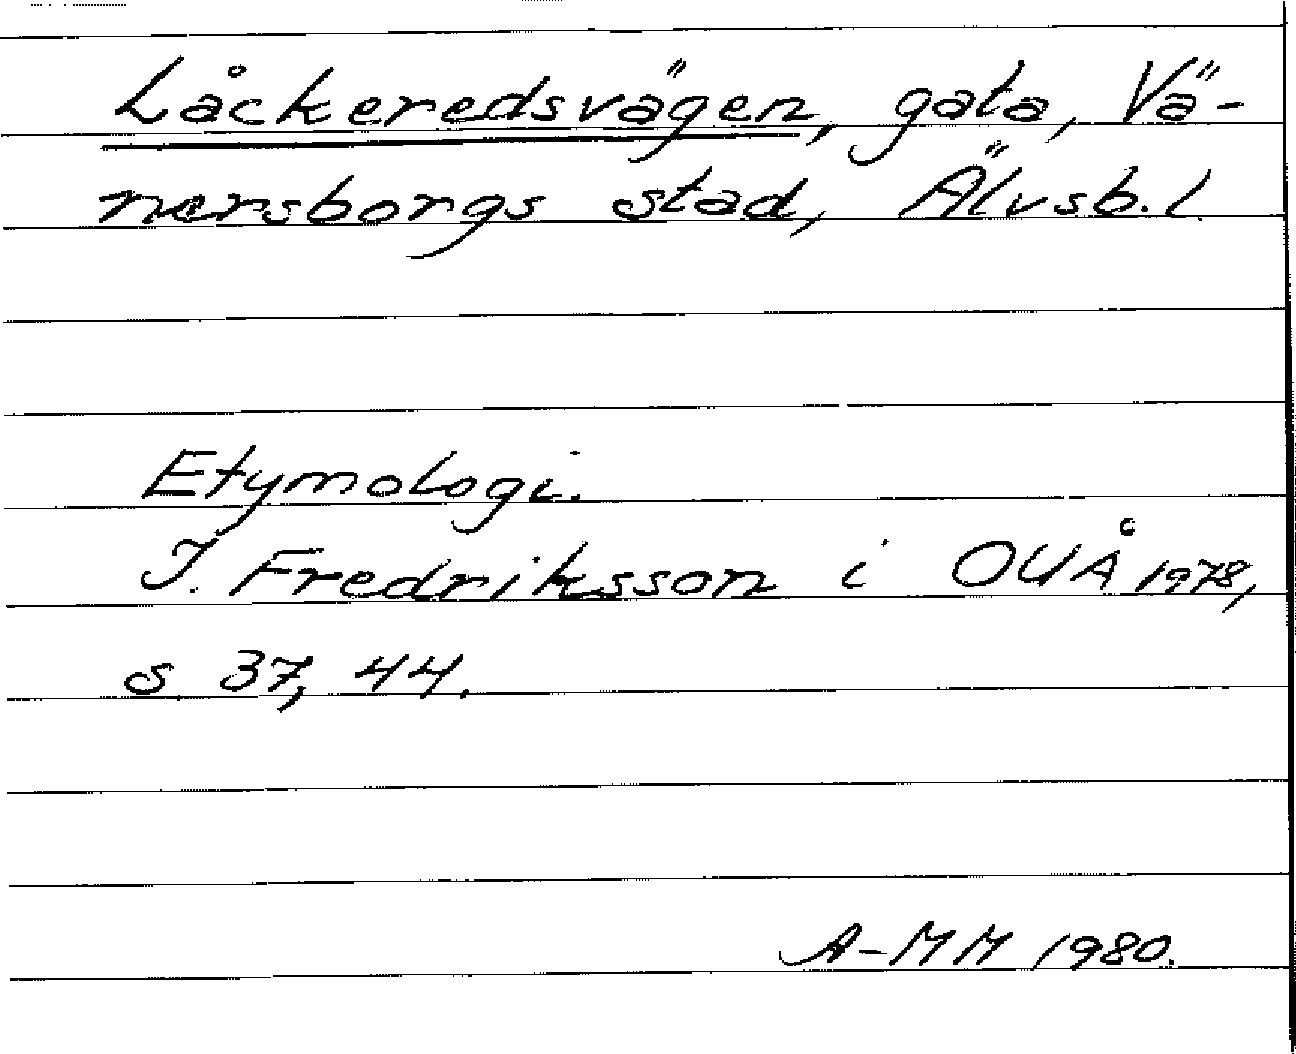 Låckeredsvägen, gata, Vä-
nersborgs stad, Älvsb. l.
Etymologi.
I. Fredriksson i OUÅ 1978,
s 37, 44.
A-MM 1980.